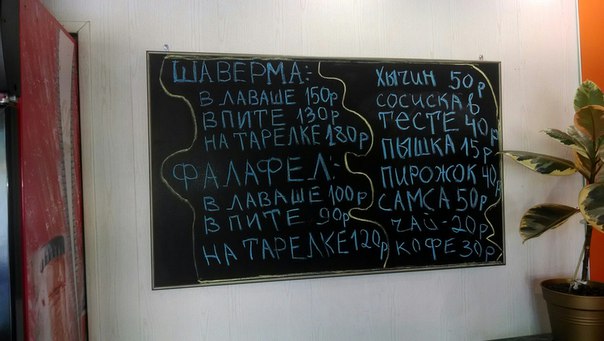 ШАВЕРМА:
В ЛАВАШЕ 150Р
В ПИТЕ 130Р
НА ТАРЕЛКЕ 180Р
ФАЛАФЕЛ:
В ЛАВАШЕ 100Р
В ПИТЕ 90Р
НА ТАРЕЛКЕ 120Р
ХЫЧИН 50Р
СОСИСКА В
ТЕСТЕ 40Р
ПЫШКА 15Р
ПИРОЖОК 40Р
САМСА 50Р
ЧАЙ-20Р
КОФЕ 30Р